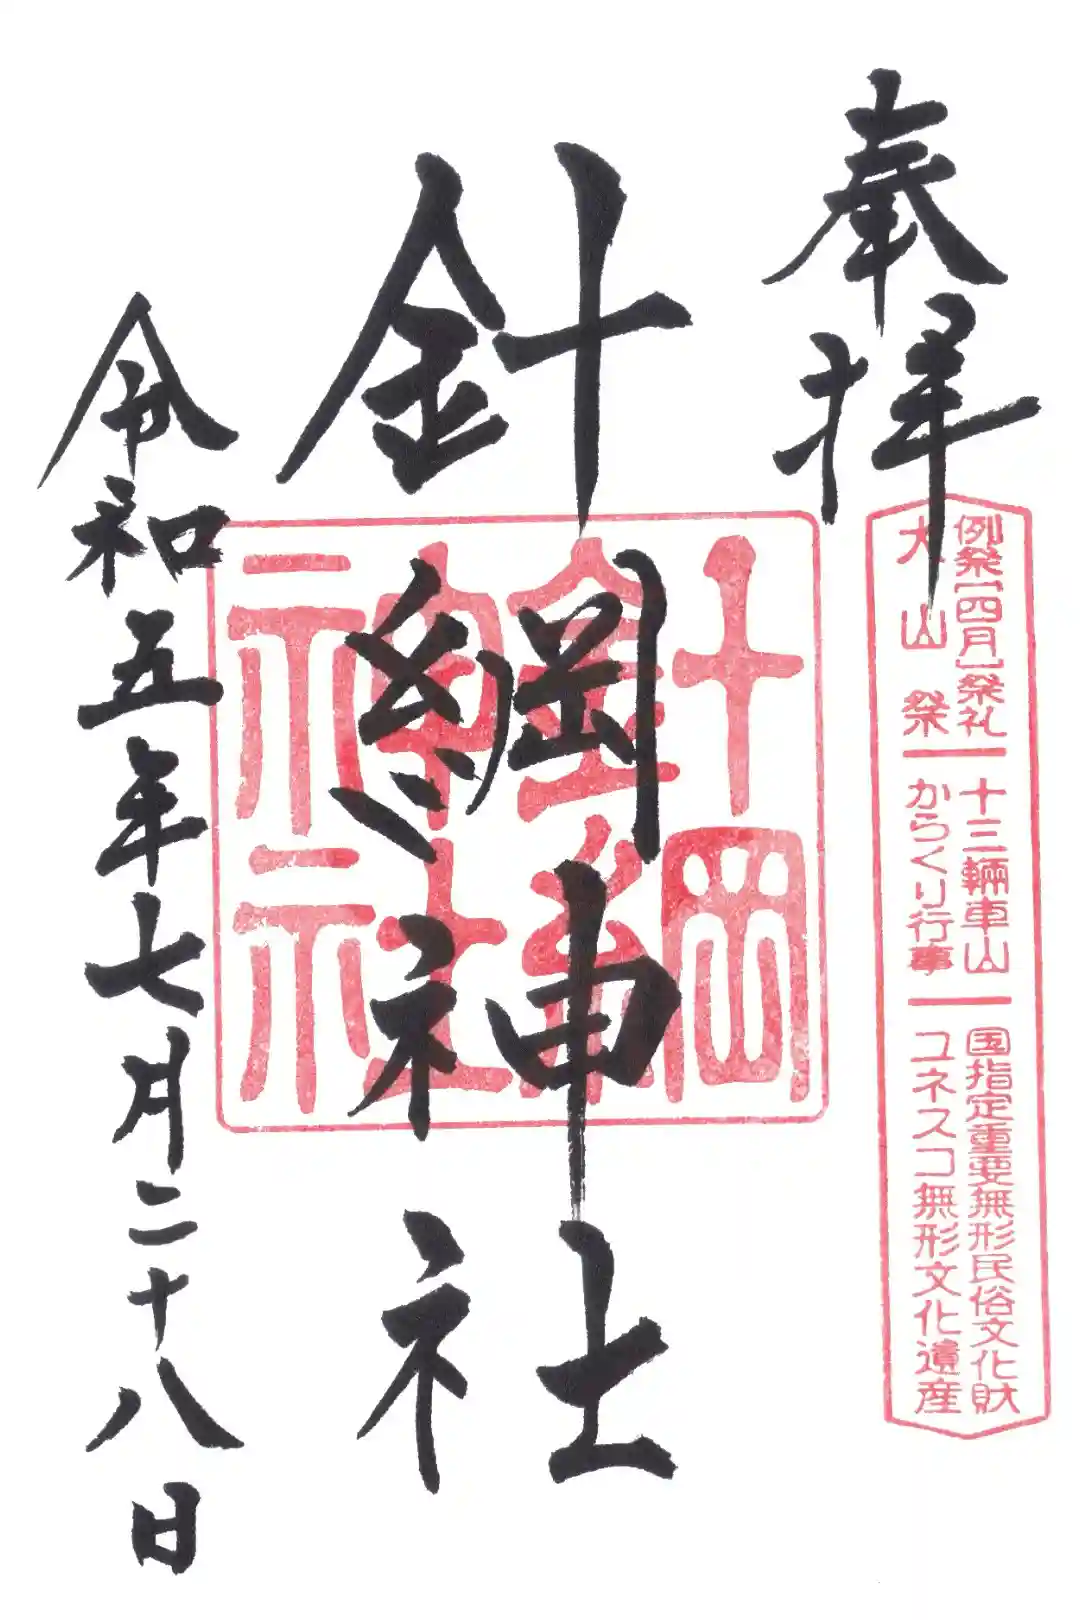 奉拝
例祭【四月】祭礼 十三輛車山 国指定重要無形民俗文化財
犬山祭 からくり行事 ユネスコ無形文化遺産
針綱神社
針綱神社
令和五年七月二十八日